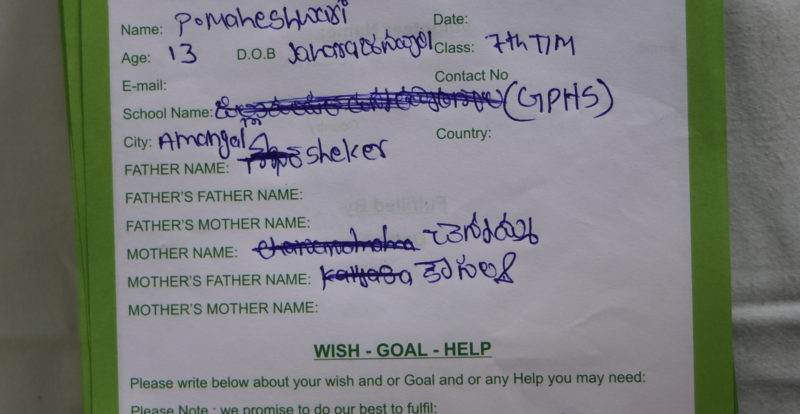 Name: P.Maheshwari Date:
Age: 13 D.O.B Class: 7th T/M
E-mail: Contact No
School Name: (GPHS)
City: Amangal Country:
FATHER NAME: Sheker
FATHER'S FATHER NAME:
FATHER'S MOTHER NAME:
MOTHER NAME:
MOTHER'S FATHER NAME:
MOTHER'S MOTHER NAME:
WISH - GOAL - HELP
Please write below about your wish and or Goal and or any Help you may need:
Please Note : we promise to do our best to fulfil: